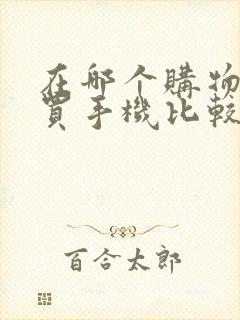 在哪个購物
買手機比較
百合太郎